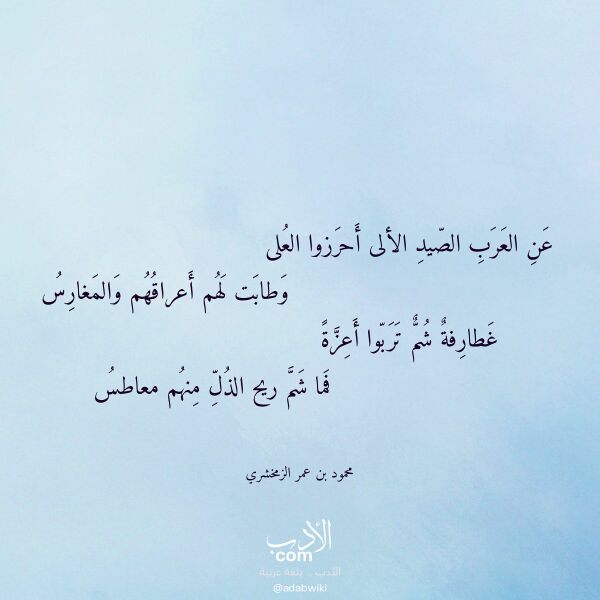 عَنِ العَرَبِ الصّيدِ الألى أَحرَزوا العُلى
وَطابَت لَهُم أَعراقُهُم وَالمَغارِسُ
غَطارِفةٌ شُمٌّ تَرَبّوا أَعِزَّةً
فَما شَمَّ ريح الذُلِّ مِنهُم معاطسُ
محمود بن عمر الزمخشري
الأدب
com
الأدب .. بلغة عربية
@adabwiki